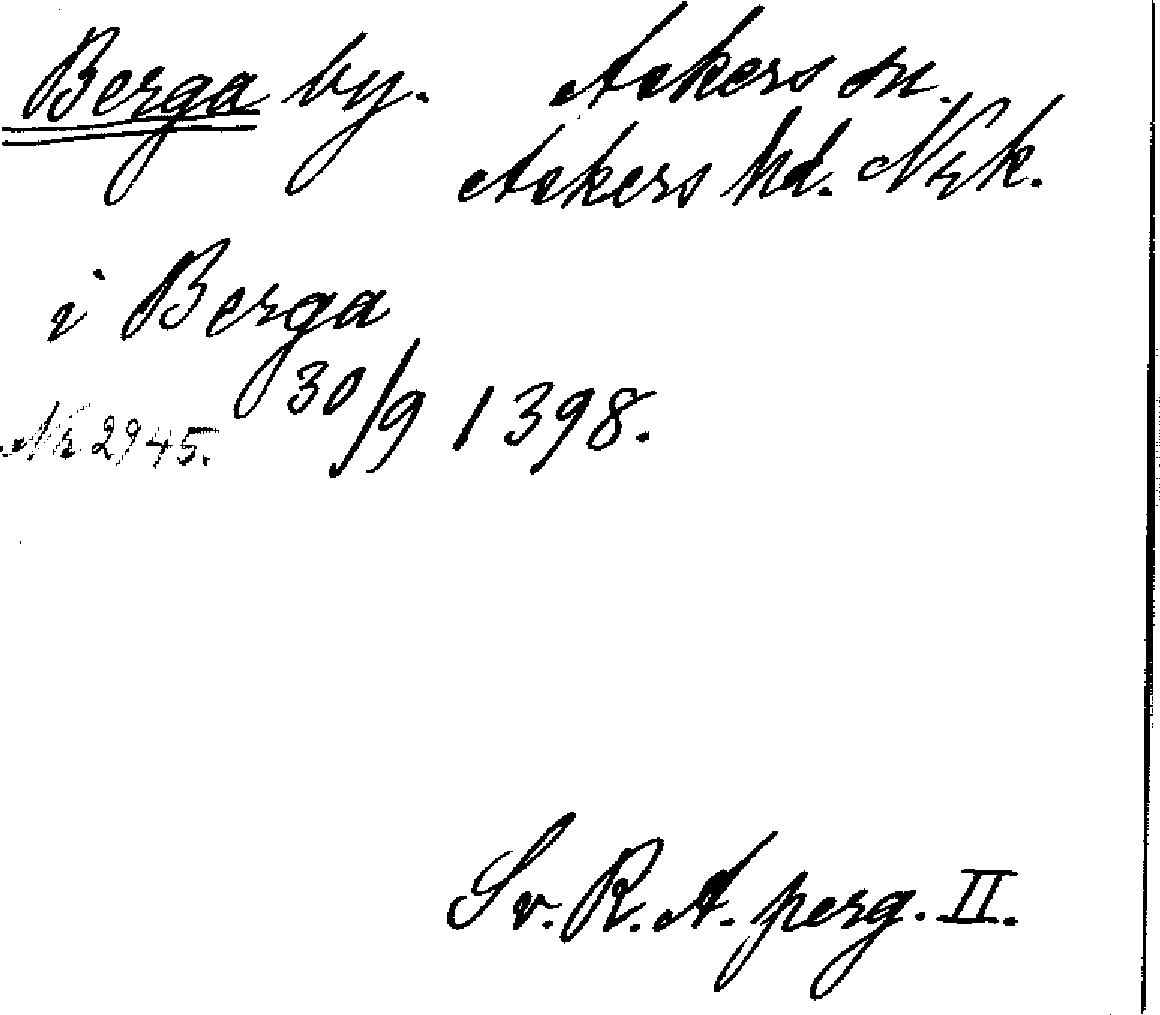 Berga by. Askers sn.
Askers hd. Nrk.
i Berga
30/9 1398.
Nr 2945.
Sv. R. A. perg. II.